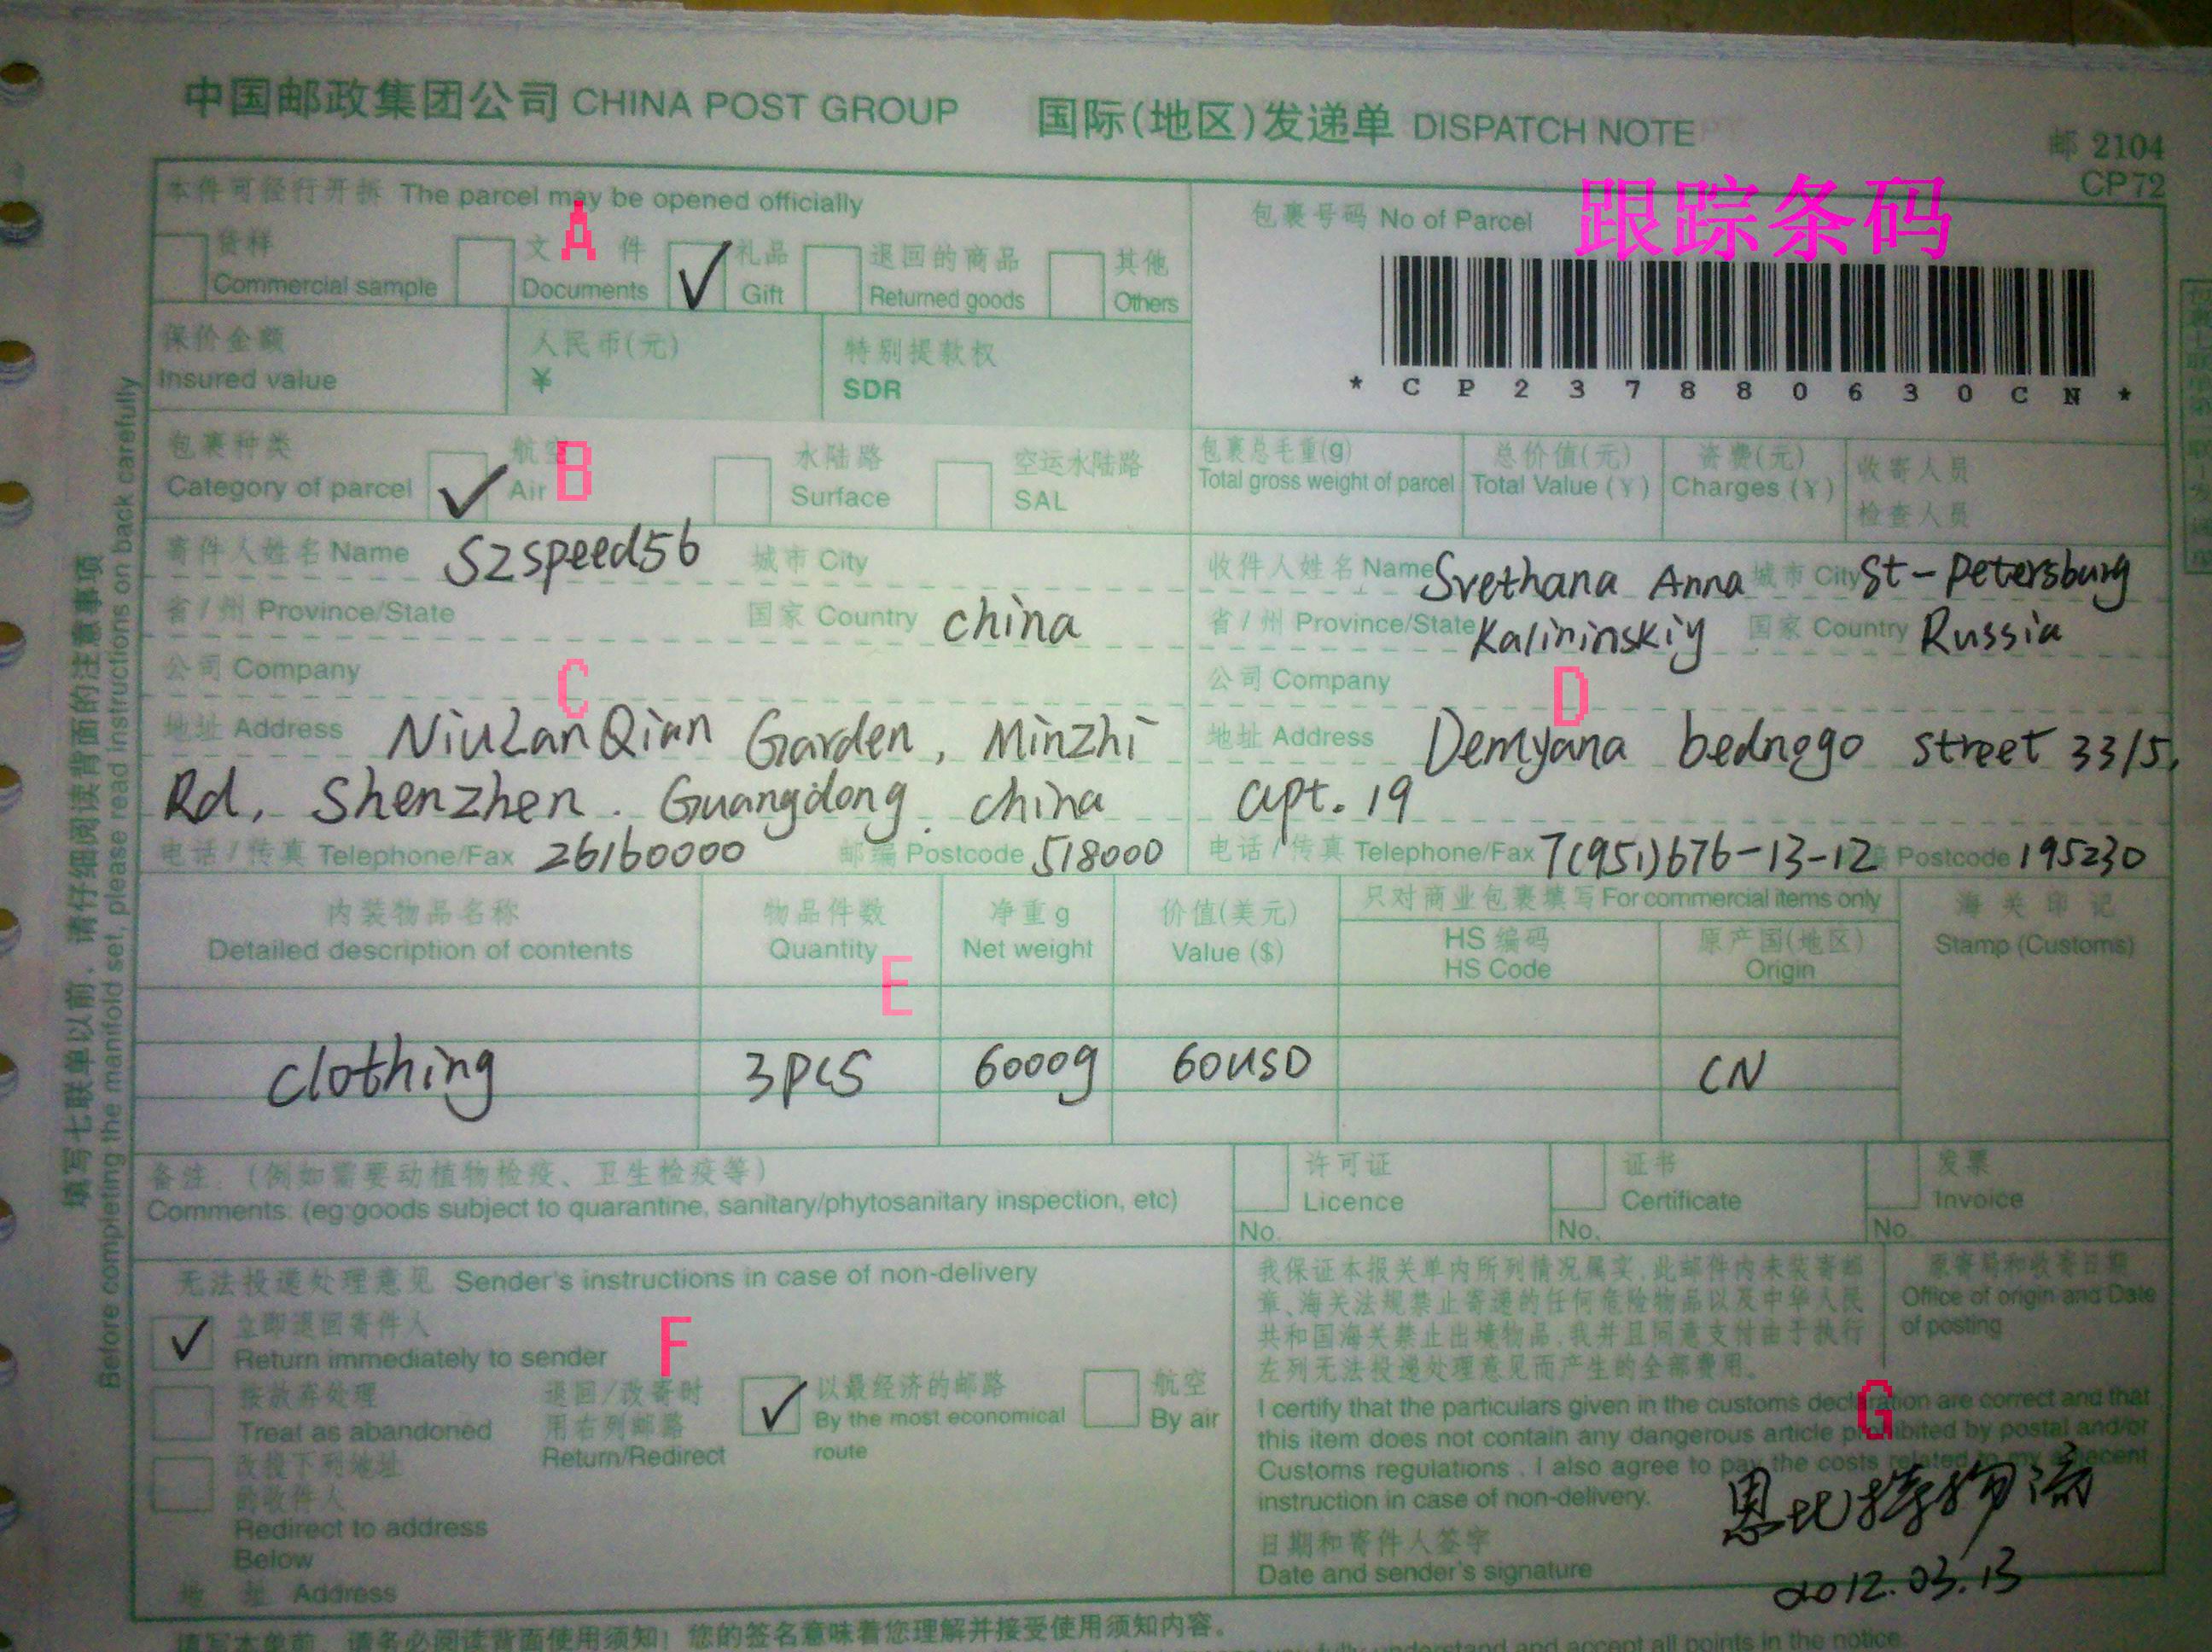 中国邮政集团公司 CHINA POST GROUP 国际(地区)发递单 DISPATCH NOTE
邮 2104
CP72
本件可径行开拆 The parcel may be opened officially
A
货样 Commercial sample
文 件 Documents
礼品 Gift
退回的商品 Returned goods
其他 Others
包裹号码 No of Parcel
跟踪条码
* C P 2 3 7 8 8 0 6 3 0 C N *
保价金额 Insured value
人民币(元) ¥
特别提款权 SDR
包裹种类 Category of parcel
航空 Air
B
水陆路 Surface
空运水陆路 SAL
包裹总毛重(g) Total gross weight of parcel
总价值(元) Total Value (¥)
资费(元) Charges (¥)
收寄人员
检查人员
寄件人姓名 Name Szspeed56 城市 City
省/州 Province/State 国家 Country china
公司 Company
C
地址 Address NiuLanQian Garden, Minzhi
Rd, Shenzhen. Guangdong. china
电话/传真 Telephone/Fax 26160000 邮编 Postcode 518000
收件人姓名 Name Svethana Anna 城市 City St-petersburg
省/州 Province/State Kalininskiy 国家 Country Russia
公司 Company
D
地址 Address Demyana bednogo street 33/5,
apt. 19
电话/传真 Telephone/Fax 7(951)676-13-12 Postcode 195230
内装物品名称 Detailed description of contents
物品件数 Quantity
净重 g Net weight
价值(美元) Value ($)
只对商业包裹填写 For commercial items only
HS 编码 HS Code
原产国(地区) Origin
海关印记 Stamp (Customs)
E
clothing 3PCS 6000g 60USD CN
备注:(例如需要动植物检疫、卫生检疫等)
Comments: (eg:goods subject to quarantine, sanitary/phytosanitary inspection, etc)
许可证 Licence No.
证书 Certificate No.
发票 Invoice No.
无法投递处理意见 Sender's instructions in case of non-delivery
立即退回寄件人
Return immediately to sender
F
按放弃处理
Treat as abandoned
改投下列地址
的收件人
Redirect to address
Below
地 址 Address
退回/改寄时
用右列邮路
Return/Redirect
以最经济的邮路
By the most economical
route
航空
By air
我保证本报关单内所列情况属实,此邮件内未装寄邮
章、海关法规禁止寄递的任何危险物品以及中华人民
共和国海关禁止出境物品,我并且同意支付由于执行
左列无法投递处理意见而产生的全部费用。
原寄局和收寄日期
Office of origin and Date
of posting
G
I certify that the particulars given in the customs declaration are correct and that
this item does not contain any dangerous article prohibited by postal and/or
Customs regulations. I also agree to pay the costs related to my
instruction in case of non-delivery.
日期和寄件人签字
Date and sender's signature
恩比特物流
2012.03.13
填写七联单以前,请仔细阅读背面的注意事项
Before completing the manifold set, please read instructions on back carefully
填写本单前,请务必阅读背面使用须知!您的签名意味着您理解并接受使用须知内容。
fully understand and accept all points in the notice.